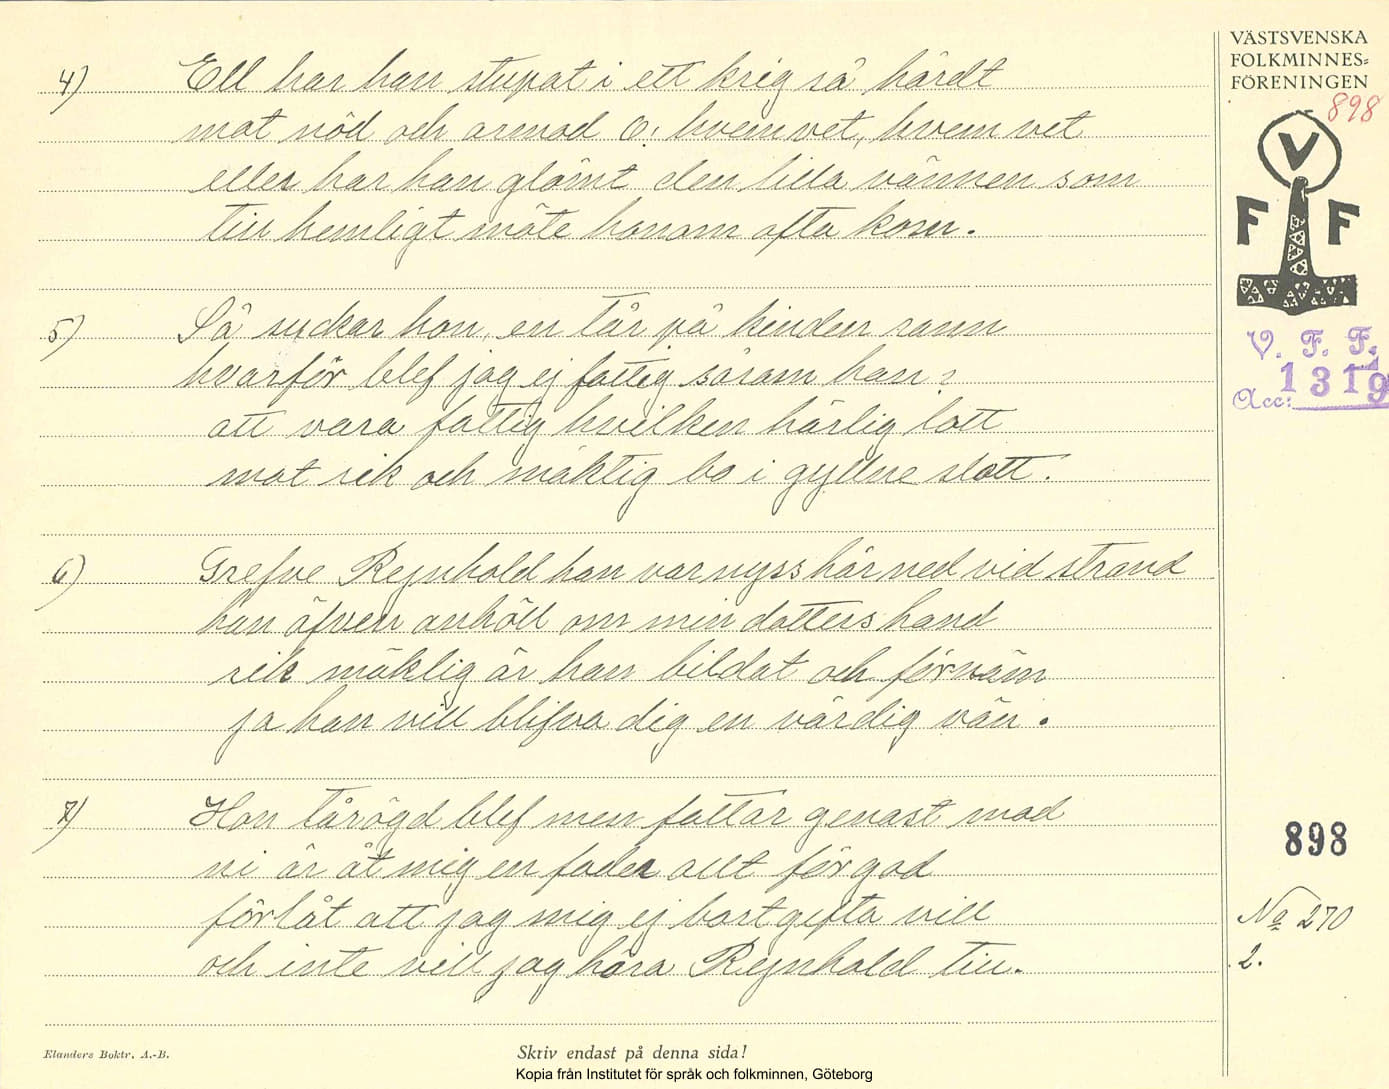 VÄSTSVENSKA
FOLKMINNES-
FÖRENINGEN
898
V
F F
V. F. F.
Acc: 1319
4) Ell har han stupat i ett krig så hårdt
mot nöd och armod O! hvem vet, hvem vet
eller har han glömt den lilla vännen som
till hemligt möte honom ofta kom.
5) Så suckar hon, en tår på kinden rann
hvarför blef jag ej fattig såsom han?
att vara fattig hvilken härlig lott
mot rik och mäktig bo i gyllne slott.
6) Grefve Rejnhold han var nyss här ned vid strand
han äfven anhöll om min dotters hand
rik mäktig är han bildat och förnäm
ja han vill blifva dig en värdig vän.
7) Hon tårögd blef men fattar genast mod
ni är åt mig en fader allt förgod
förlåt att jag mig ej bortgifta vill
och inte vill jag höra Rejnhold till.
898
No 270
2.
Elanders Boktr. A.-B.
Skriv endast på denna sida!
Kopia från Institutet för språk och folkminnen, Göteborg